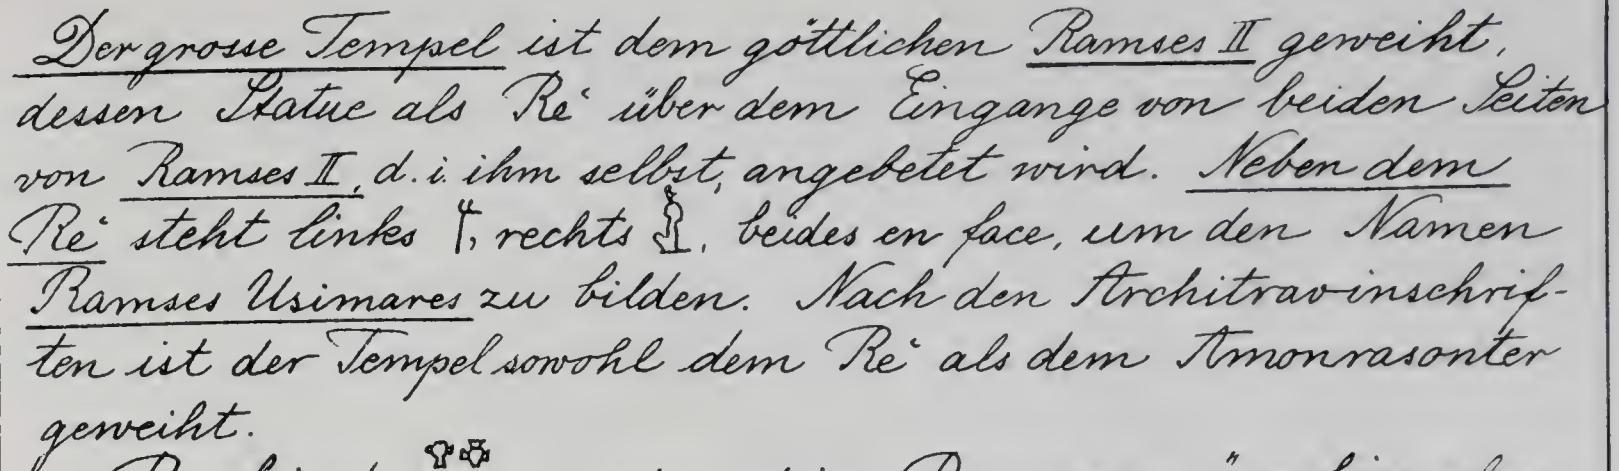 Der grosse Tempel ist dem göttlichen Ramses II geweiht,
dessen Statue als Rēʿ über dem Eingange von beiden Seiten
von Ramses II, d. i. ihm selbst, angebetet wird. Neben dem
Rēʿ steht links 𓄊, rechts 𓁦, beides en face, um den Namen
Ramses Usimares zu bilden. Nach den Architravinschrif-
ten ist der Tempel sowohl dem Rēʿ als dem Amonrasonter
geweiht.